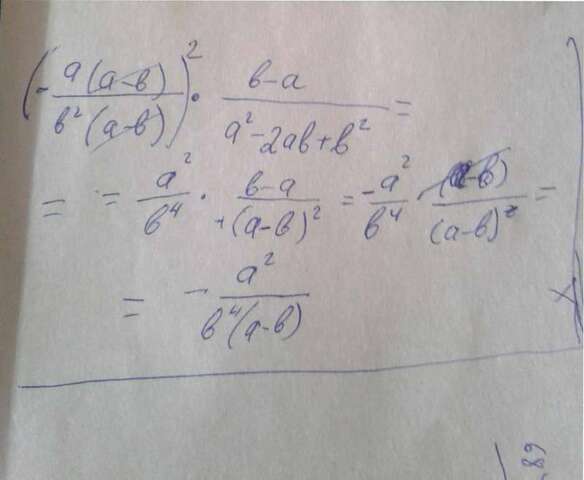 (- a(a-b) / b²(a-b))² · (b-a) / (a²-2ab+b²) =
= = a²/b⁴ · (b-a) / +(a-b)² = -a²/b⁴ · (a-b) / (a-b)² =
= - a² / b⁴(a-b)
89